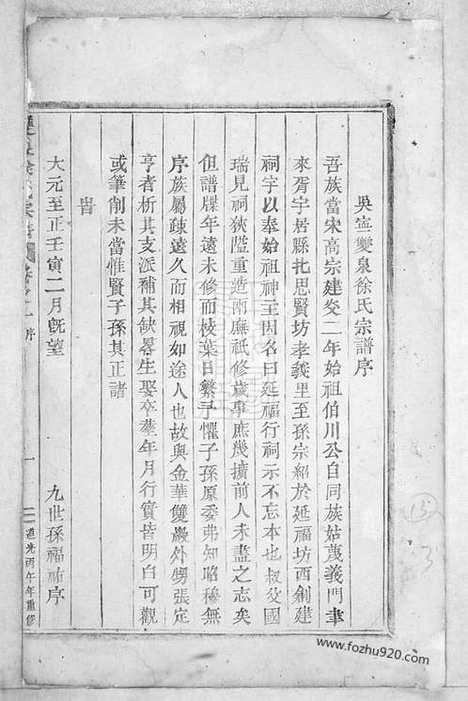 吳寧雙泉徐氏宗譜序
吾族當宋高宗建炎二年始祖伯川公自同族姑蔑義門聿
來胥宇居縣北思賢坊孝義里至孫宗紹於延福坊西創建
祠宇以奉始祖神主因名曰延福行祠示不忘本也叔父國
瑞見祠狹隘重造兩廡祇修歲事庶幾擴前人未盡之志矣
但譜牒年遠未修而枝葉日繁予懼子孫原委弗知昭穆無
序族屬疎遠久而相視如途人也故與金華雙巖外甥張定
亨者析其支派補其缺畧生娶卒塟年月行實皆明白可觀
或筆削未當惟賢子孫其正諸
旹
大元至正壬寅二月旣望
九世孫福祐序
序
一
道光丙午年重修
www.fozhu920.com